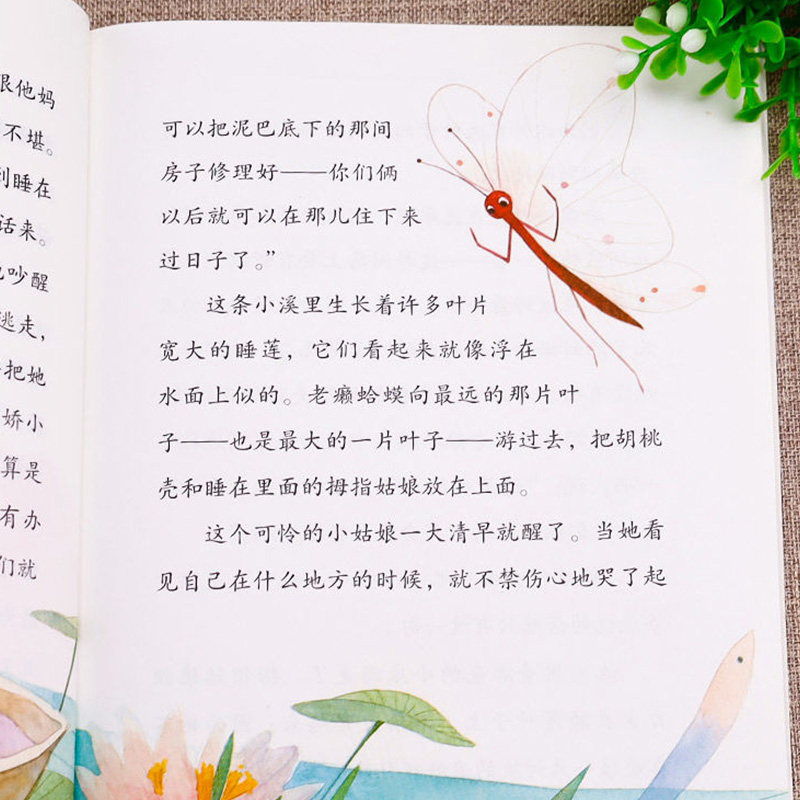 跟他妈
不堪。
到睡在
话来。
也吵醒
逃走，
把她
娇小
算是
有办
们就
可以把泥巴底下的那间
房子修理好——你们俩
以后就可以在那儿住下来
过日子了。”
这条小溪里生长着许多叶片
宽大的睡莲，它们看起来就像浮在
水面上似的。老癞蛤蟆向最远的那片叶
子——也是最大的一片叶子——游过去，把胡桃
壳和睡在里面的拇指姑娘放在上面。
这个可怜的小姑娘一大清早就醒了。当她看
见自己在什么地方的时候，就不禁伤心地哭了起